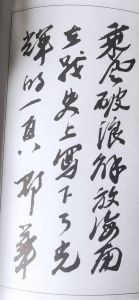 乘风破浪解放海南
在战史上寫下了光
輝的一页 邓華